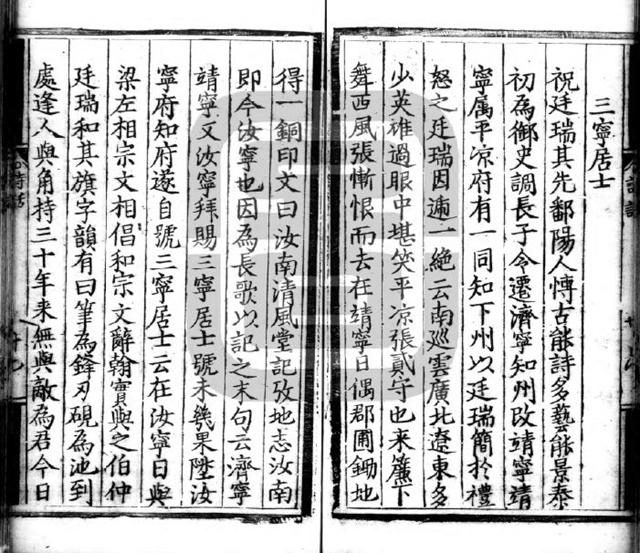 三寧居士
祝廷瑞其先鄱陽人慱古能詩多藝能景泰
初為御史調長子令遷濟寧知州改靖寧靖
寧属平凉府有一同知下州以廷瑞簡於禮
怒之廷瑞因遞一絶云南巡雲廣北遼東多
少英雄過眼中堪笑平凉張貳守也来簾下
舞西風張慚恨而去在靖寧日偶郡圃鋤地
得一銅印文曰汝南清風堂記攷地志汝南
即今汝寧也因為長歌以記之末句云濟寧
靖寧又汝寧拜賜三寧居士號未幾果陞汝
寧府知府遂自號三寧居士云在汝寧日與
梁左相宗文相倡和宗文辭翰實與之伯仲
廷瑞和其旗字韻有曰筆為鋒刃硯為池到
處逢人與角持三十年来無與敵為君今日